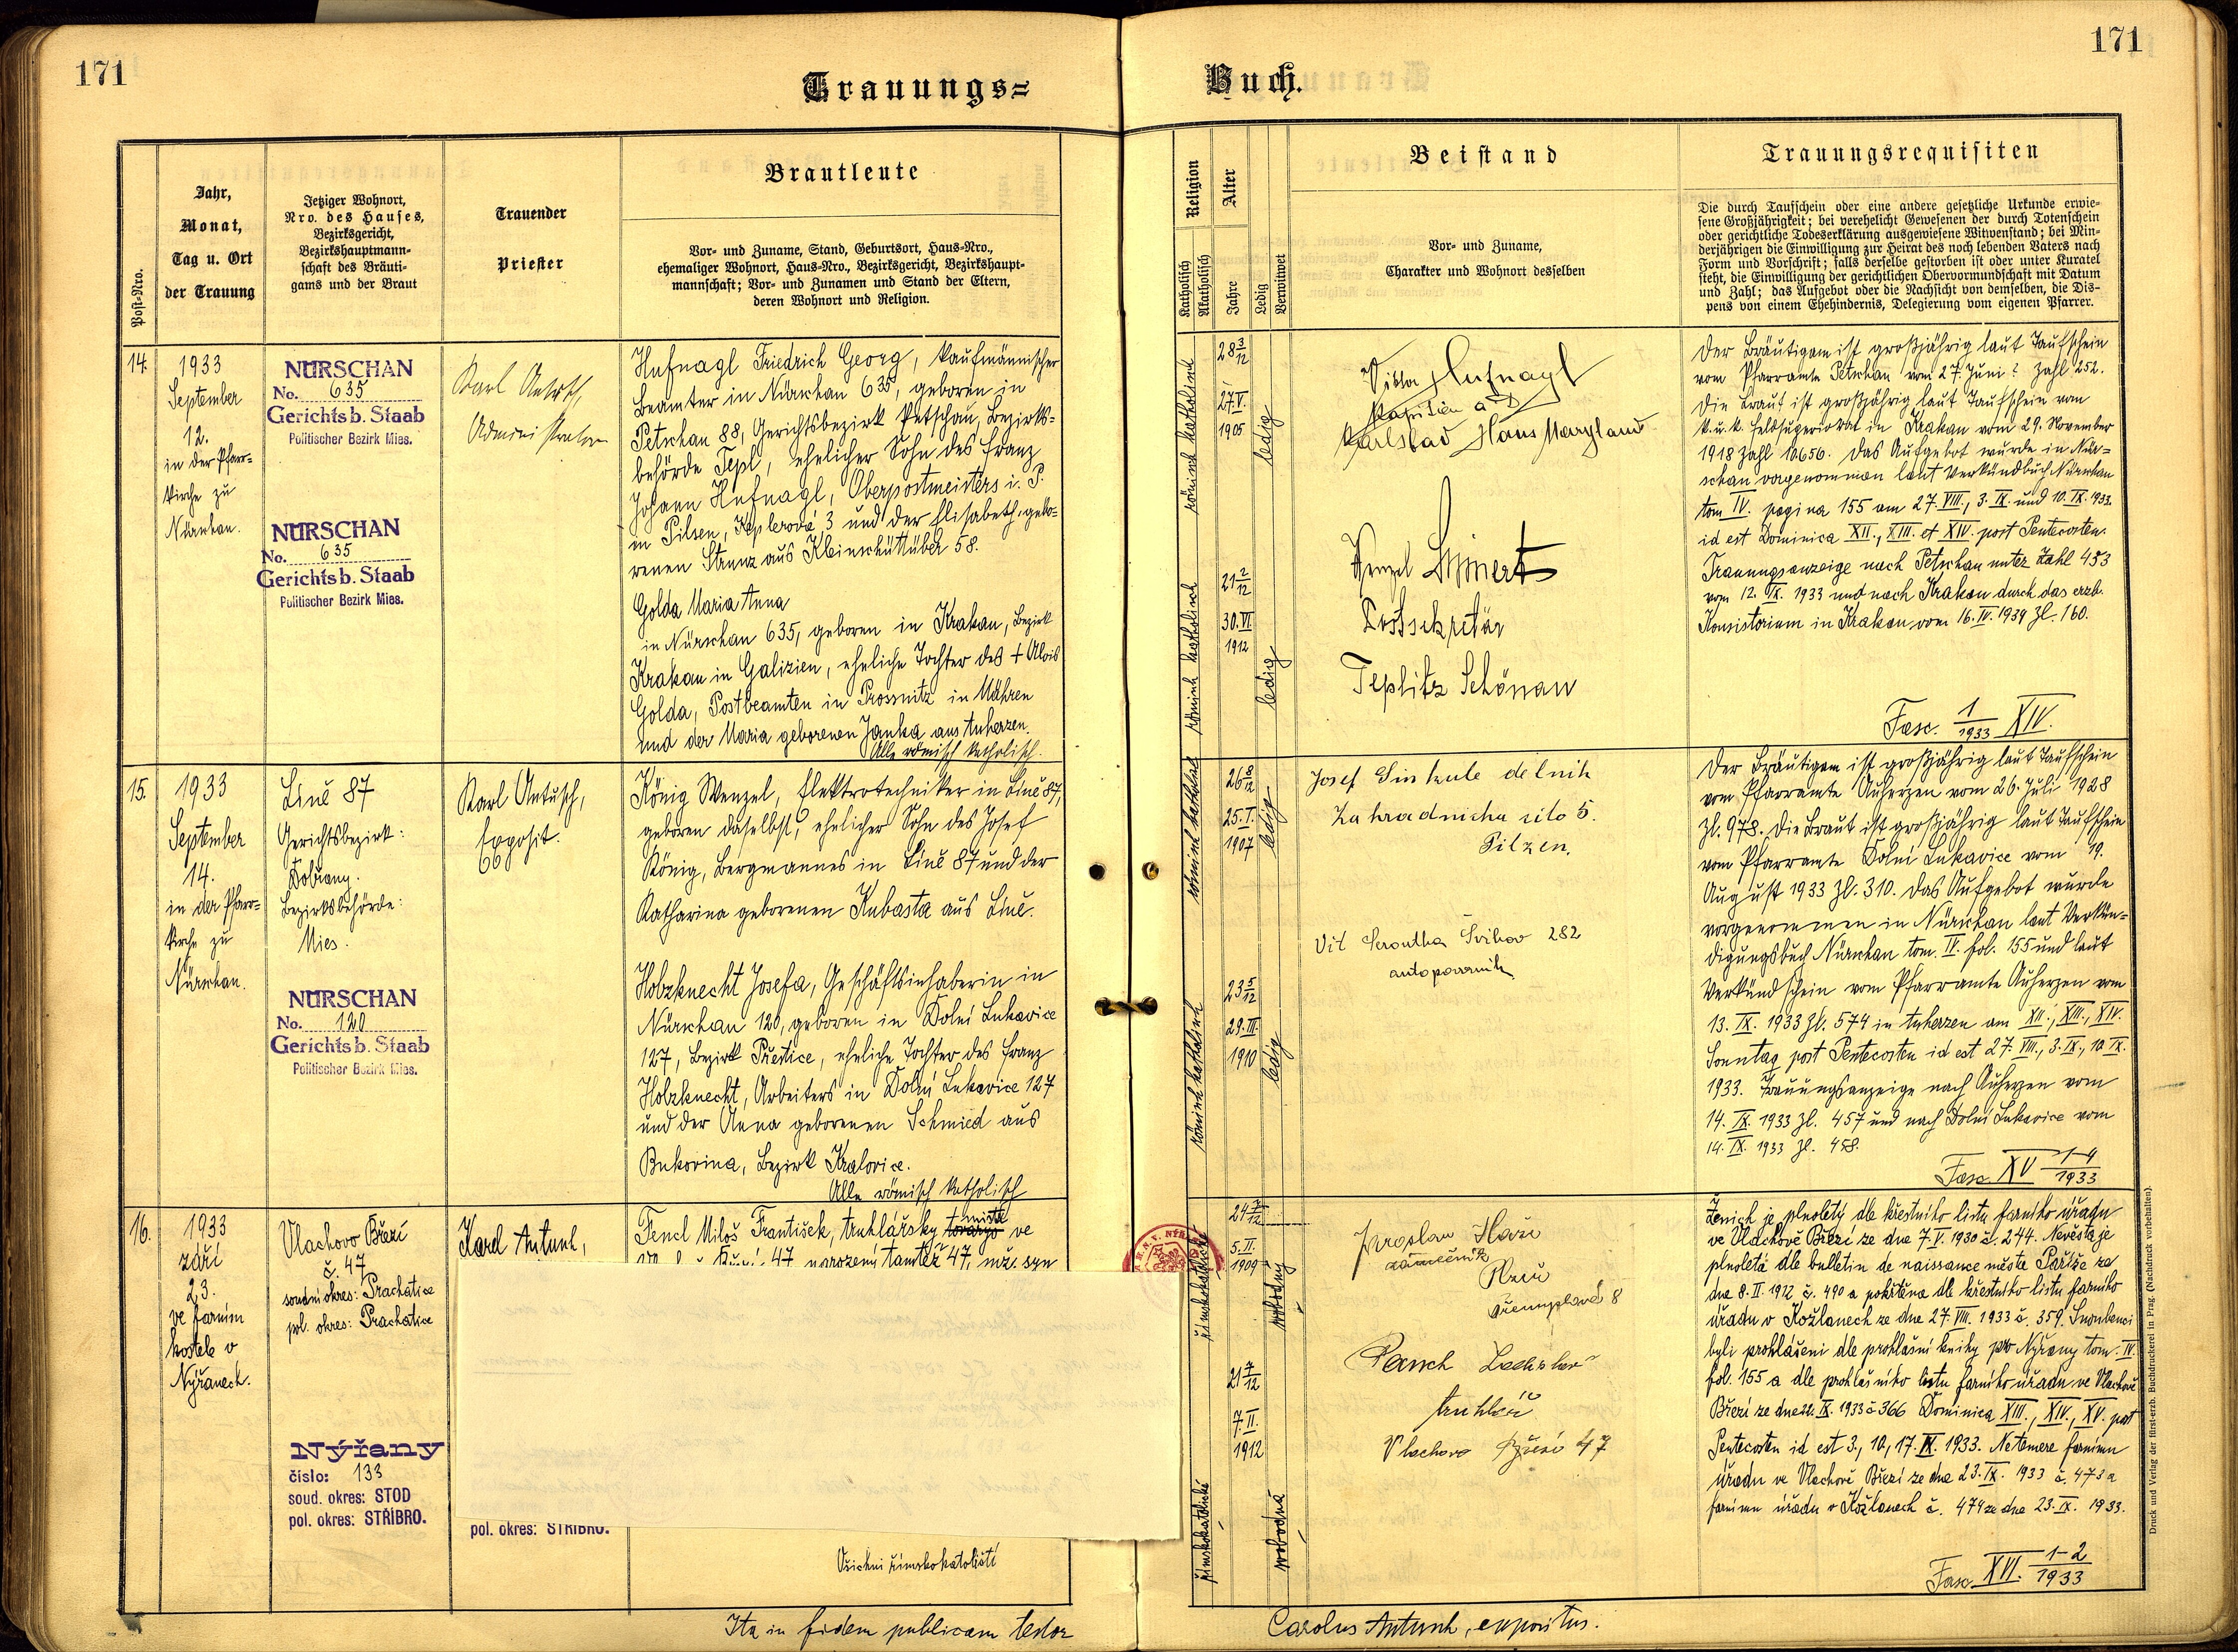 171
171
Trauungs=
Buch.
Post-Nro.
Jahr,
Monat,
Tag u. Ort
der Trauung
Jetziger Wohnort,
Nro. des Hauses,
Bezirksgericht,
Bezirkshauptmann-
schaft des Bräuti-
gams und der Braut
Trauender
Priester
Brautleute
Vor- und Zuname, Stand, Geburtsort, Haus-Nro.,
ehemaliger Wohnort, Haus-Nro., Bezirksgericht, Bezirkshaupt-
mannschaft; Vor- und Zunamen und Stand der Eltern,
deren Wohnort und Religion.
Religion
Katholisch
Akatholisch
Alter
Jahre
Ledig
Verwitwet
Beistand
Vor- und Zuname,
Charakter und Wohnort desselben
Trauungsrequisiten
Die durch Taufschein oder eine andere gesetzliche Urkunde erwie-
sene Großjährigkeit; bei verehelicht Gewesenen der durch Totenschein
oder gerichtliche Todeserklärung ausgewiesene Witwenstand; bei Min-
derjährigen die Einwilligung zur Heirat des noch lebenden Vaters nach
Form und Vorschrift; falls derselbe gestorben ist oder unter Kuratel
steht, die Einwilligung der gerichtlichen Obervormundschaft mit Datum
und Zahl; das Aufgebot oder die Nachsicht von demselben, die Dis-
pens von einem Ehehindernis, Delegierung vom eigenen Pfarrer.
14.
1933
September
12.
in der Pfarr=
kirche zu
Nürschan.
NÜRSCHAN
No. 635
Gerichtsb. Staab
Politischer Bezirk Mies.
NÜRSCHAN
No. 635
Gerichtsb. Staab
Politischer Bezirk Mies.
Karl Antusch,
Administrator
Hufnagl Friedrich Georg, kaufmännischer
Beamter in Nürschan 635, geboren in
Petschau 88, Gerichtsbezirk Petschau, Bezirks=
behörde Tepl, ehelicher Sohn des Franz
Johann Hufnagl, Oberpostmeisters i. P.
in Pilsen, Keplerová 3 und der Elisabeth, gebo=
renen Strunz aus Kleinschüttüber 58.
Golda Maria Anna
in Nürschan 635, geboren in Krakau, Bezirk
Krakau in Galizien, eheliche Tochter des + Alois
Golda, Postbeamten in Prossnitz in Mähren
und der Maria geborenen Janka aus Auherzen.
Alle römisch katholisch.
römisch katholisch
28 3/12
27.V.
1905
ledig
römisch katholisch
21 2/12
30.VI
1912
ledig
Viktor Hufnagl
Kapitän a D
Karlsbad Haus Maryland
Wenzel
Postsekretär
Teplitz Schönau
Der Bräutigam ist großjährig laut Taufschein
vom Pfarramte Petschau vom 27. Juni ? Zahl 252.
Die Braut ist großjährig laut Taufschein vom
k.u.k. Feldsuperiorat in Krakau vom 29. November
1918 Zahl 10656. Das Aufgebot wurde in Nür=
schan vorgenommen laut Verkündbuch Nürschan
tom IV. pagina 155 am 27. VIII., 3. IX. und 10. IX. 1933.
id est Dominica XII., XIII. et XIV. post Pentecosten.
Trauungsanzeige nach Petschau unter Zahl 453
vom 12. IX. 1933 und nach Krakau durch das erzb.
Konsistorium in Krakau vom 16. IV. 1934 Zl. 160.
Fasc. 1/1933 XIV.
15.
1933
September
14.
in der Pfarr=
kirche zu
Nürschan.
Líně 87
Gerichtsbezirk:
Dobřany.
Bezirksbehörde:
Mies.
NÜRSCHAN
No. 120
Gerichtsb. Staab
Politischer Bezirk Mies.
Karl Antusch,
Exposit.
König Wenzel, Elektrotechniker in Líně 87,
geboren daselbst, ehelicher Sohn des Josef
König, Bergmannes in Líně 87 und der
Katharina geborenen Kubasta aus Líně.
Holzknecht Josefa, Geschäftsinhaberin in
Nürschan 120, geboren in Dolní Lukavice
127, Bezirk Přeštice, eheliche Tochter des Franz
Holzknecht, Arbeiters in Dolní Lukavice 127
und der Anna geborenen Schmied aus
Bukovina, Bezirk Kralovice.
Alle römisch katholisch
römisch katholisch
26 8/12
25.I.
1907
ledig
römisch katholisch
23 5/12
29.III
1910
ledig
Josef Sinkule dělník
Zahradnicka čílo 5.
Pilzen.
Vít Švihov 282
Der Bräutigam ist großjährig laut Taufschein
vom Pfarramte Auherzen vom 26. Juli 1928
Zl. 978. Die Braut ist großjährig laut Taufschein
vom Pfarramte Dolní Lukavice vom 19.
August 1933 Zl. 310. Das Aufgebot wurde
vorgenommen in Nürschan laut Verkün=
digungsbuch Nürschan tom. IV. fol. 155 und laut
Verkündschein vom Pfarramte Auherzen vom
13. IX. 1933 Zl. 574 in Auherzen am XII., XIII., XIV.
Sonntag post Pentecosten id est 27. VIII., 3. IX., 10. IX.
1933. Trauungsanzeige nach Auherzen vom
14. IX. 1933 Zl. 457 und nach Dolní Lukavice vom
14. IX. 1933 Zl. 458.
Fasc. XV 1-4/1933
16.
1933
září
23.
ve farním
kostele v
Nýřanech.
Vlachovo Březí
č. 47
soudní okres: Prachatice
pol. okres: Prachatice
Nýřany
číslo: 133
soud. okres: STOD
pol. okres: STŘÍBRO.
Karel Antusch,
pol. okres: STŘÍBRO.
Fencl Miloš František, truhlářský mistr ve
Březí 47, narozený tamtéž 47, mž. syn
Všichni římskokatoličtí
římskokatolické
24 7/12
5. II.
1909
svobodný
římskokatolické
21 7/12
7. II.
1912
svobodná
Jaroslav
zámečník
Plzeň
Přemyslová 8
Ladislav
truhlář
Vlachovo Březí 47
Ženich je plnoletý dle křestního listu farního úřadu
ve Vlachově Březí ze dne 7. V. 1930 č. 244. Nevěsta je
plnoletá dle bulletin de naissance města Paříže ze
dne 8. II. 1912 č. 490 a pokřtěna dle křestního listu farního
úřadu v Kožlanech ze dne 27. VIII. 1933 č. 359. Snoubenci
byli prohlášeni dle prohlášní knihy pro Nýřany tom. IV.
fol. 155 a dle prohlašního listu farního úřadu ve Vlachově
Březí ze dne 22. IX. 1933 č 366 Dominica XIII., XIV., XV. post
Pentecosten id est 3., 10., 17. IX. 1933. Netemere farnímu
úřadu ve Vlachově Březí ze dne 23. IX. 1933 č. 473 a
farnímu úřadu v Kožlanech č. 474 ze dne 23. IX. 1933.
Fasc. XVI. 1-2/1933
Ita in fidem publicam testor
Carolus Antusch, expositus.
Druck und Verlag der fürst-erzb. Buchdruckerei in Prag. (Nachdruck vorbehalten).